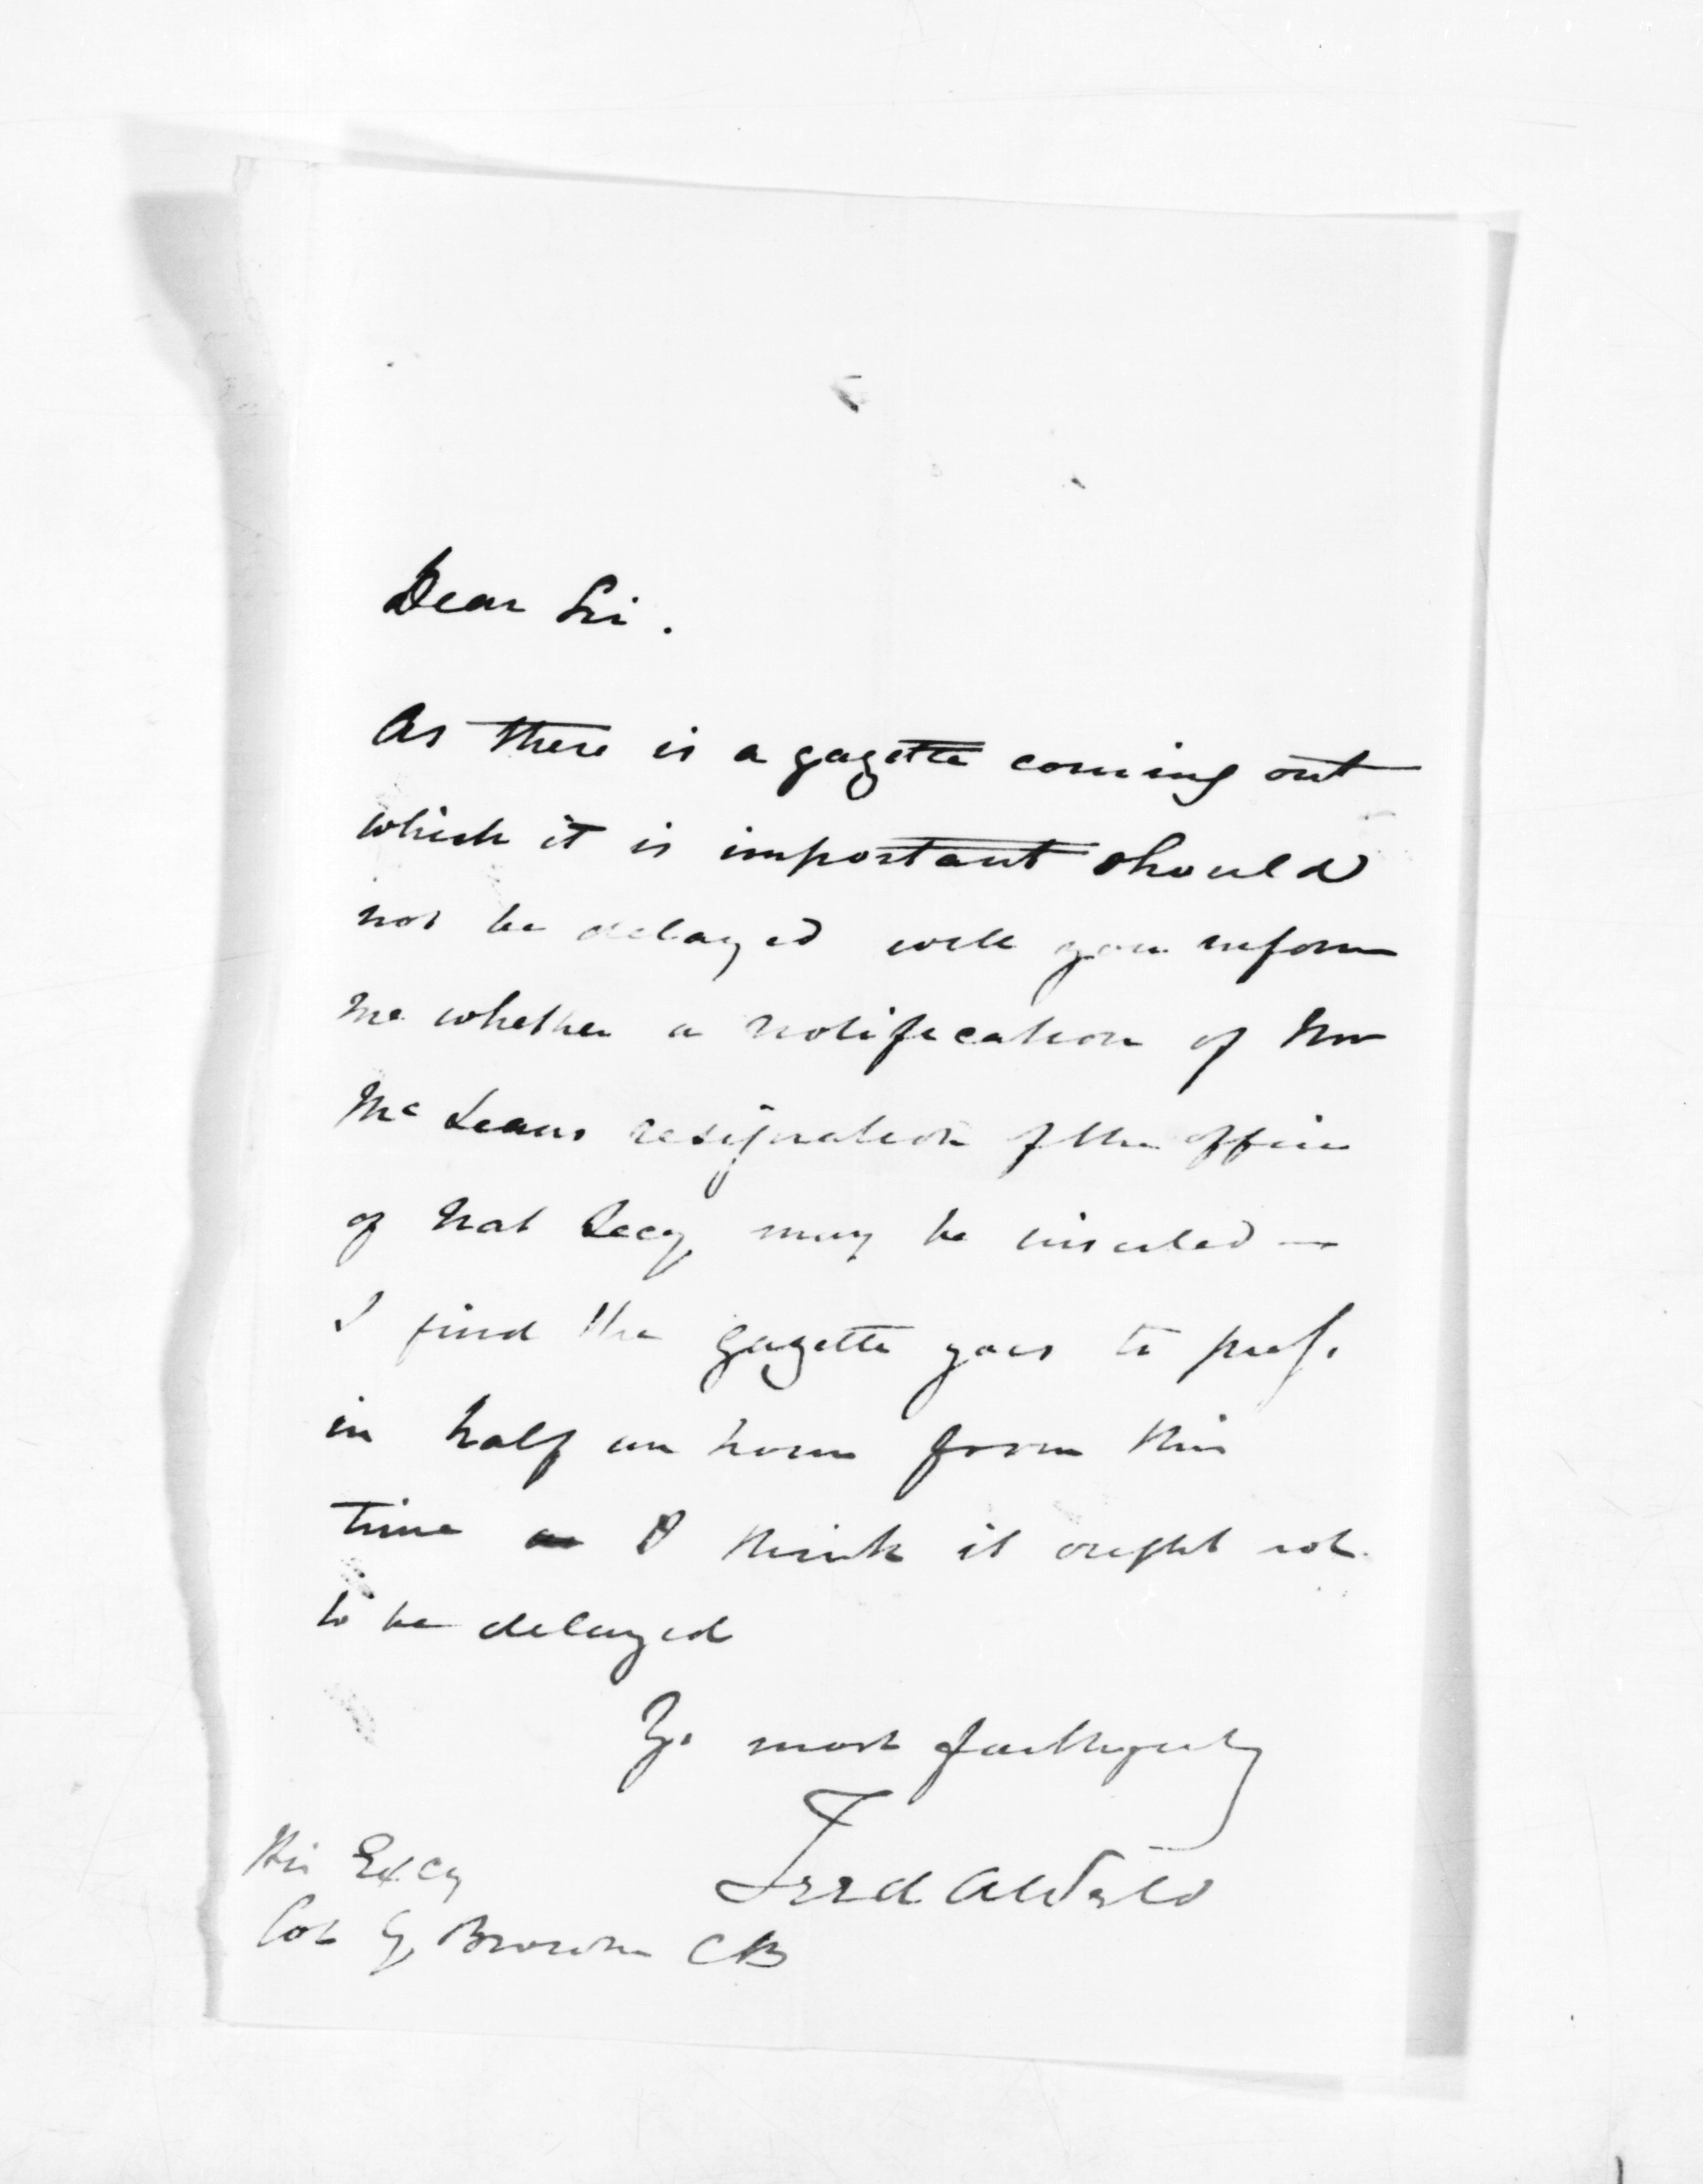 Dear Sir.
As there is a gazette coming out
which it is important should
not be delayed will you inform
me whether a notification of Mr
McLeans resignation of the office
of Nat Secy may be inserted —
I find the gazette goes to press
in half an hour from this
time I think it ought not
to be delayed
Yrs most faithfully
Fredk A Weld
His Excy
Col G, Browne CB